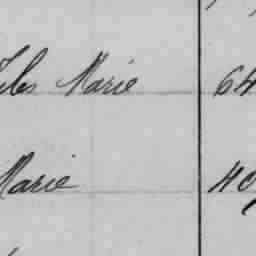 Jules Marie 64
Marie 40